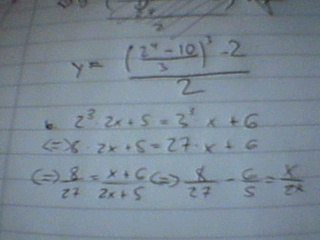 y = ((2^4 - 10)/3)^3 - 2)/2
2^3 · 2x + 5 = 3^3 · x + 6
(=> 8 · 2x + 5 = 27 · x + 6
(=>) 8/27 = (x + 6)/(2x + 5) (=>) 8/27 - 6/5 = x/2x